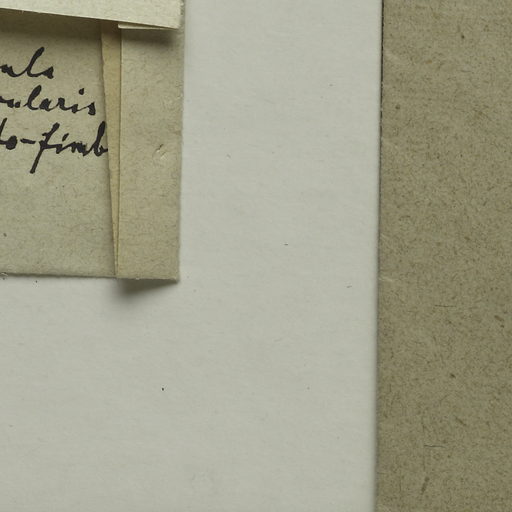 ula
ularis
to-fimb